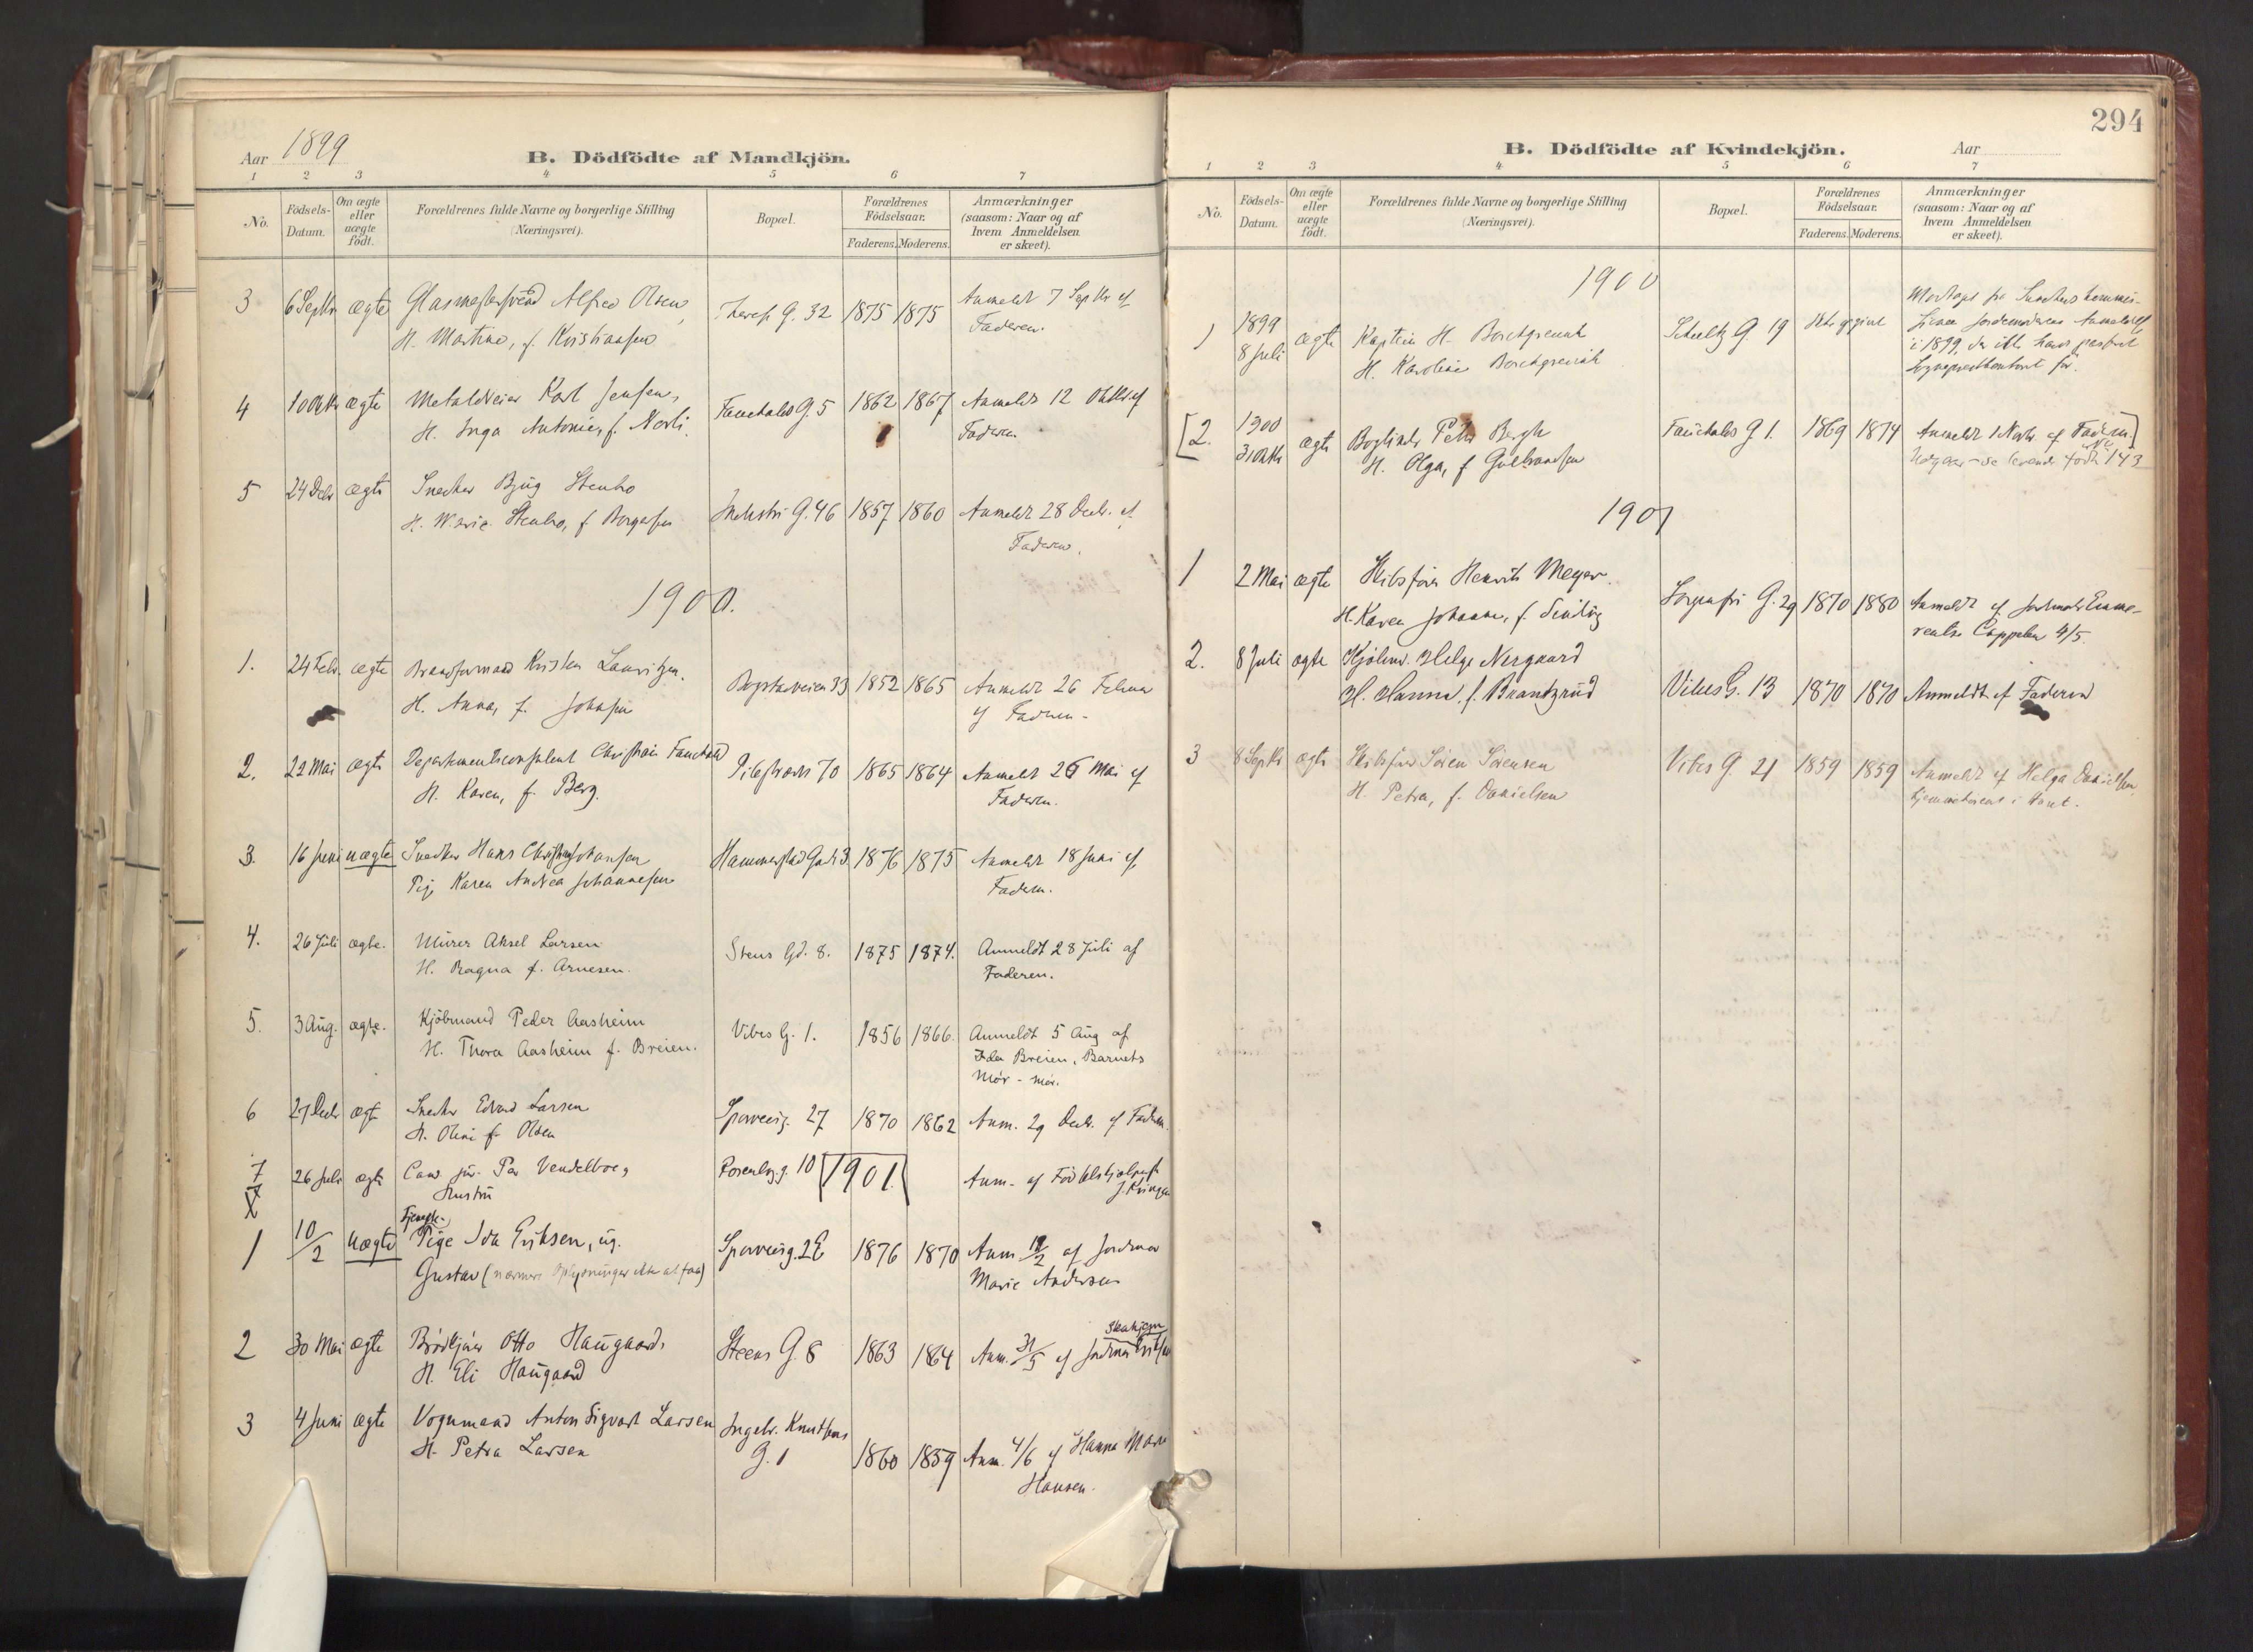 Aar 1899
B. Dödfödte af Mandkjön.
1 2 3 4 5 6 7
No.
Födsels-Datum.
Om ægte eller uægte födt.
Forældrenes fulde Navne og borgerlige Stilling (Næringsvei).
Bopæl.
Forældrenes Födselsaar.
Faderens. Moderens.
Anmærkninger (saasom: Naar og af hvem Anmeldelsen er skeet).
3 6 Septbr ægte Glasmestersvend Alfred Olsen, Theres. G. 32 1875 1875 Anmeldt 7 Septbr af
H. Martine, f. Kristiansen Faderen.
4 10 Oktbr ægte Metaldreier Karl Jensen, Fauchalds G. 5 1862 1867 Anmeldt 12 Oktbr af
H. Inga Antonie, f. Norli. Faderen.
5 24 Debr ægte Snedker Bjug Stenbo Industri G. 46 1857 1860 Anmeldt 28 Decb. af
H. Marie Stenbo, f. Borgersen Faderen.
1900.
1. 24 Febr. ægte Brandformand Kristen Lauritzen. Bogstadveien 33 1852 1865 Anmeldt 26 Februar
H. Anna, f. Johnsen af Faderen.
2. 22 Mai ægte Departementsconsulent Christian Fauchald Pilestrædet 70 1865 1864 Anmeldt 26 Mai af
H. Karen, f. Berg. Faderen.
3. 16 Juni uægte Snedker Hans Christian Johansen Hammerstad Gade 3. 1876 1875 Anmeldt 18 Juni af
Pige Karen Andrea Johannesen Faderen.
4. 26 Juli ægte. Murer Aksel Larsen Stens Gd. 8. 1875 1874. Anmeldt 28 Juli af
H. Ragna f. Arnesen. Faderen.
5. 3 Aug. ægte. Kjöbmand Peder Aasheim Vibes G. 1. 1856 1866. Anmeldt 5 Aug af
H. Thora Aasheim f. Breien. Ida Breien, Barnets
Mor - mor.
6 27 Decbr ægte Snedker Edvard Larsen Sporveisg. 27 1870 1862 Anm. 29 Decb. af Faderen.
H. Oline f. Olsen
7 26 Juli ægte Cand. jur. Per Vendelboe, Rosenborgg. 10 Anm. af Födselshjælpersk
Hustru J. Kringen
1901.
1 10/2 Uægte Tjeneste-
Pige Ida Eriksen, ug. Sporveisg. 2E 1876 1870 Anm 12/2 af Jordmor
Gustav (nærmere Oplysninger ikke at faa) Marie Andersen
2 30 Mai ægte Brödkjörer Otto Haugaard, Steens G 8 1863 1864 Anm. 31/5 af Jordmor
H. Eli Haugaard
3 4 Juni ægte Vognmand Anton Sigvart Larsen Ingebr. Knutsens 1860 1859 Anm. 4/6 af Hanna Marie
H. Petra Larsen G. 1 Hansen.
294
B. Dödfödte af Kvindekjön.
Aar
1 2 3 4 5 6 7
No.
Födsels-Datum.
Om ægte eller uægte födt.
Forældrenes fulde Navne og borgerlige Stilling (Næringsvei).
Bopæl.
Forældrenes Födselsaar.
Faderens. Moderens.
Anmærkninger (saasom: Naar og af hvem Anmeldelsen er skeet).
1900
1 1899 8 Juli ægte Kaptein H. Borchgrevink Schultz G 19 Ikke opgivet Modtaget fra Sundhedskommis-
H. Karoline Borchgrevink
i 1899, da ikke
Sognepræstkontoret før.
[2. 1900 31 Oktbr ægte Bogbinder Peter Bergh Fauchalds G 1. 1869 1874 Anmeldt 1 Novbr. af Faderen]
H. Olga, f Gulbrandsen Udgaar - se levende födte Nr 143
1901
1 2 Mai ægte Skibsförer Henrik Meyer. Sorgenfri G. 29 1870 1880 Anmeldt af Jordmoder Emme-
H. Karen Johanne, f. rentse Cappelen 4/5.
2. 8 Juli ægte Kjölmd. Helge Nergaard
H. Hanna, f. Brantzrud Vibes G. 13 1870 1870 Anmeldt af Faderen
3 8 Septbr ægte Skibsförer Sören Sörensen Vibes G. 21 1859 1859 Anmeldt af Helga Danielsen
H. Petra, f. Danielsen hjemmehørende i